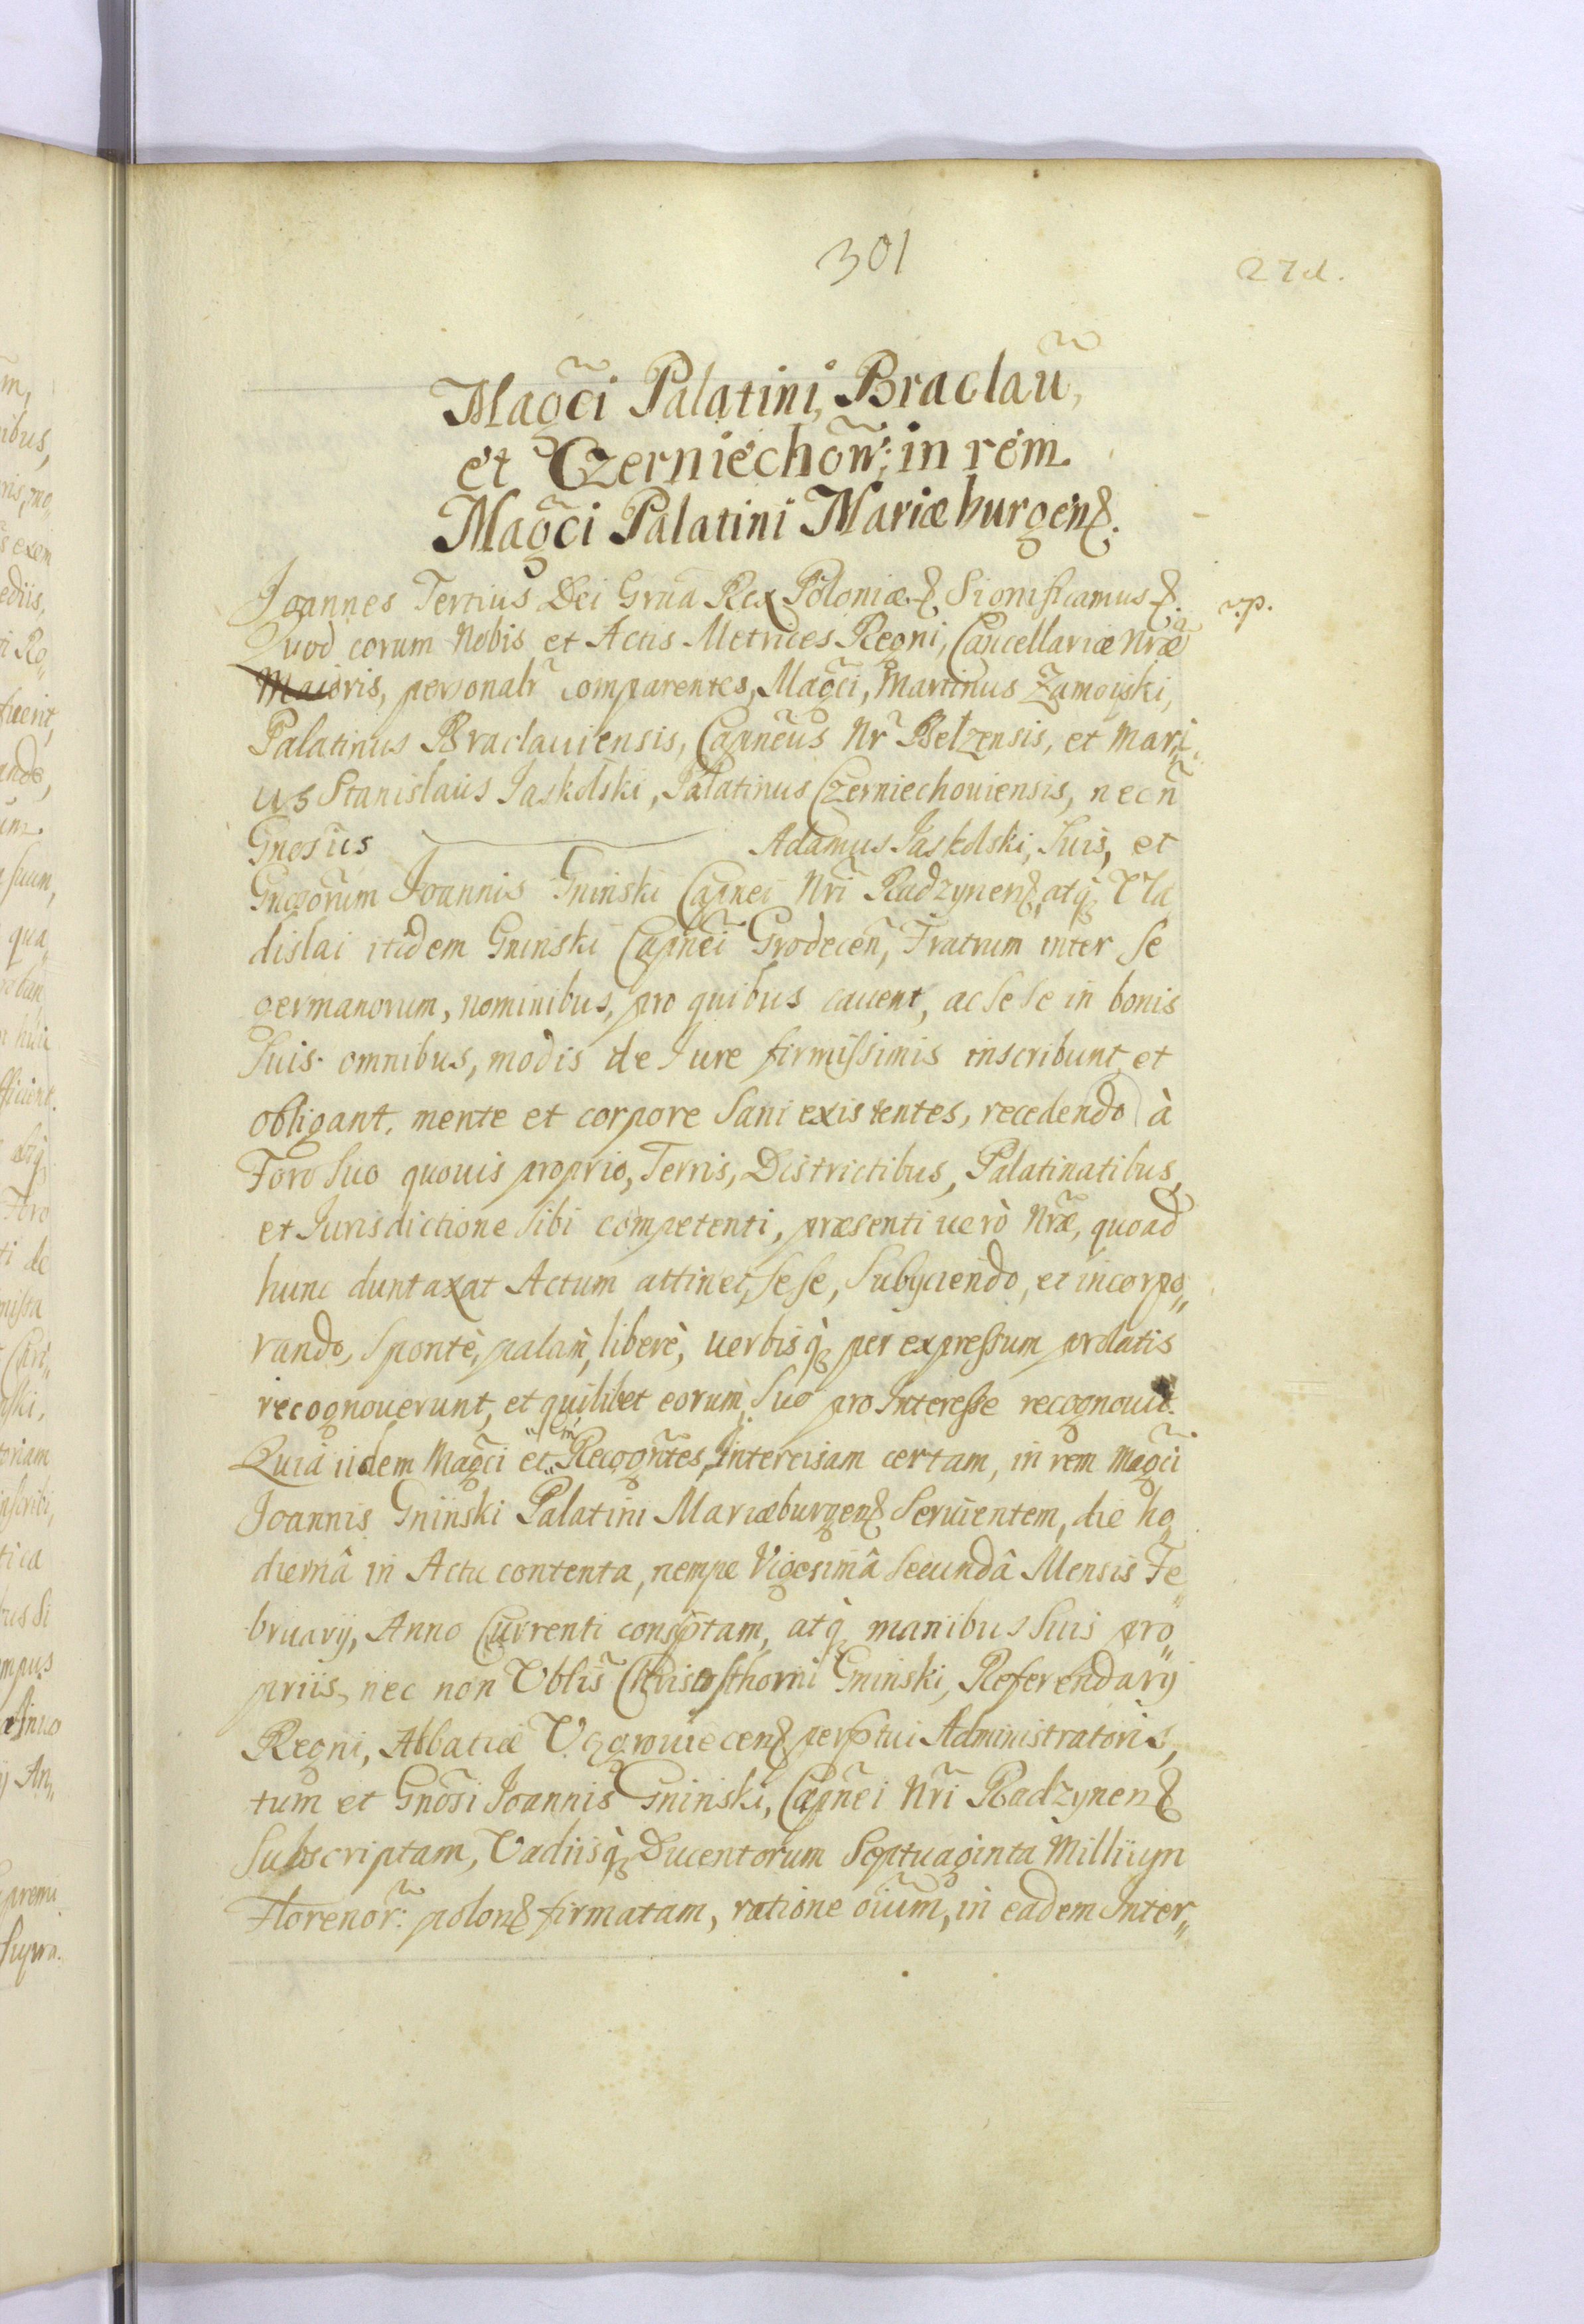 301
27d.
Magc̃i Palatini Braclaũ,
et Czerniechõn: in rem
Magc̃i Palatini Mariæburgen&.
Joannes Tertius Dei Grãa Rex Poloniæ &. Significamus &. r.p.
Quod corum Nobis et Actis Metrices Regni, Cancellariæ Nrã̃æ
Maioris, personalr̃ comparentes, Magc̃i, Martinus Zamoyski,
Palatinus Braclauiensis, Capnẽus Nr̃ Belzensis, et Mari
us Stanislaus Jaskolski, Palatinus Czerniechouiensis, necñ
Gnosus Adamus Jaskolski, Suis, et
Gnosorum Joannis Gninski Capnei Nri Radzynen&, atq̢ Vla
dislai itidem Gninski Capnẽi Grodeceñ, Fratrum inter se
germanorum, nominibus, pro quibus cauent, ac sese in bonis
Suis omnibus, modis de Jure firmissimis inscribunt et
obligant. mente et corpore Sani existentes, recedendo à
Foro Suo quouis proprio, Terris, Districtibus, Palatinatibus,
et Jurisdictione Sibi competenti, præsenti uerò Nrã̃æ, quoad
hunc duntaxat Actum attinet, sese, Subijciendo, et incorpo„
rando, Spontè, palàm, liberè, uerbisq̢ per expressum prolatis
recognouerunt, et quilibet eorum Suo pro Interesse recognouit.
Quia iidem Magc̃i et Recogñtes, Intercisam certam, in rem Magc̃i
Joannis Gninski Palatini Mariæburgen& Seruientem, die ho
diernâ in Actu contenta, nempe Vigesimâ Secundâ Mensis Fe„
bruarij, Anno Currenti consptam, atq̢ manibus Suis pro„
priis, nec non Vblis̃ Christosthorni Gninski, Referendarij
Regni, Abbatiæ Vągrouiecen& perptui Administratoris,
tum et Gnõsi Joannis Gninski, Capñei Nrĩ Radzynen&
Subscriptam, Vadiisq̢ Ducentorum Septuaginta Millium
Florenor̃: polon& firmatam, ratione oĩum, in eadem Inter„